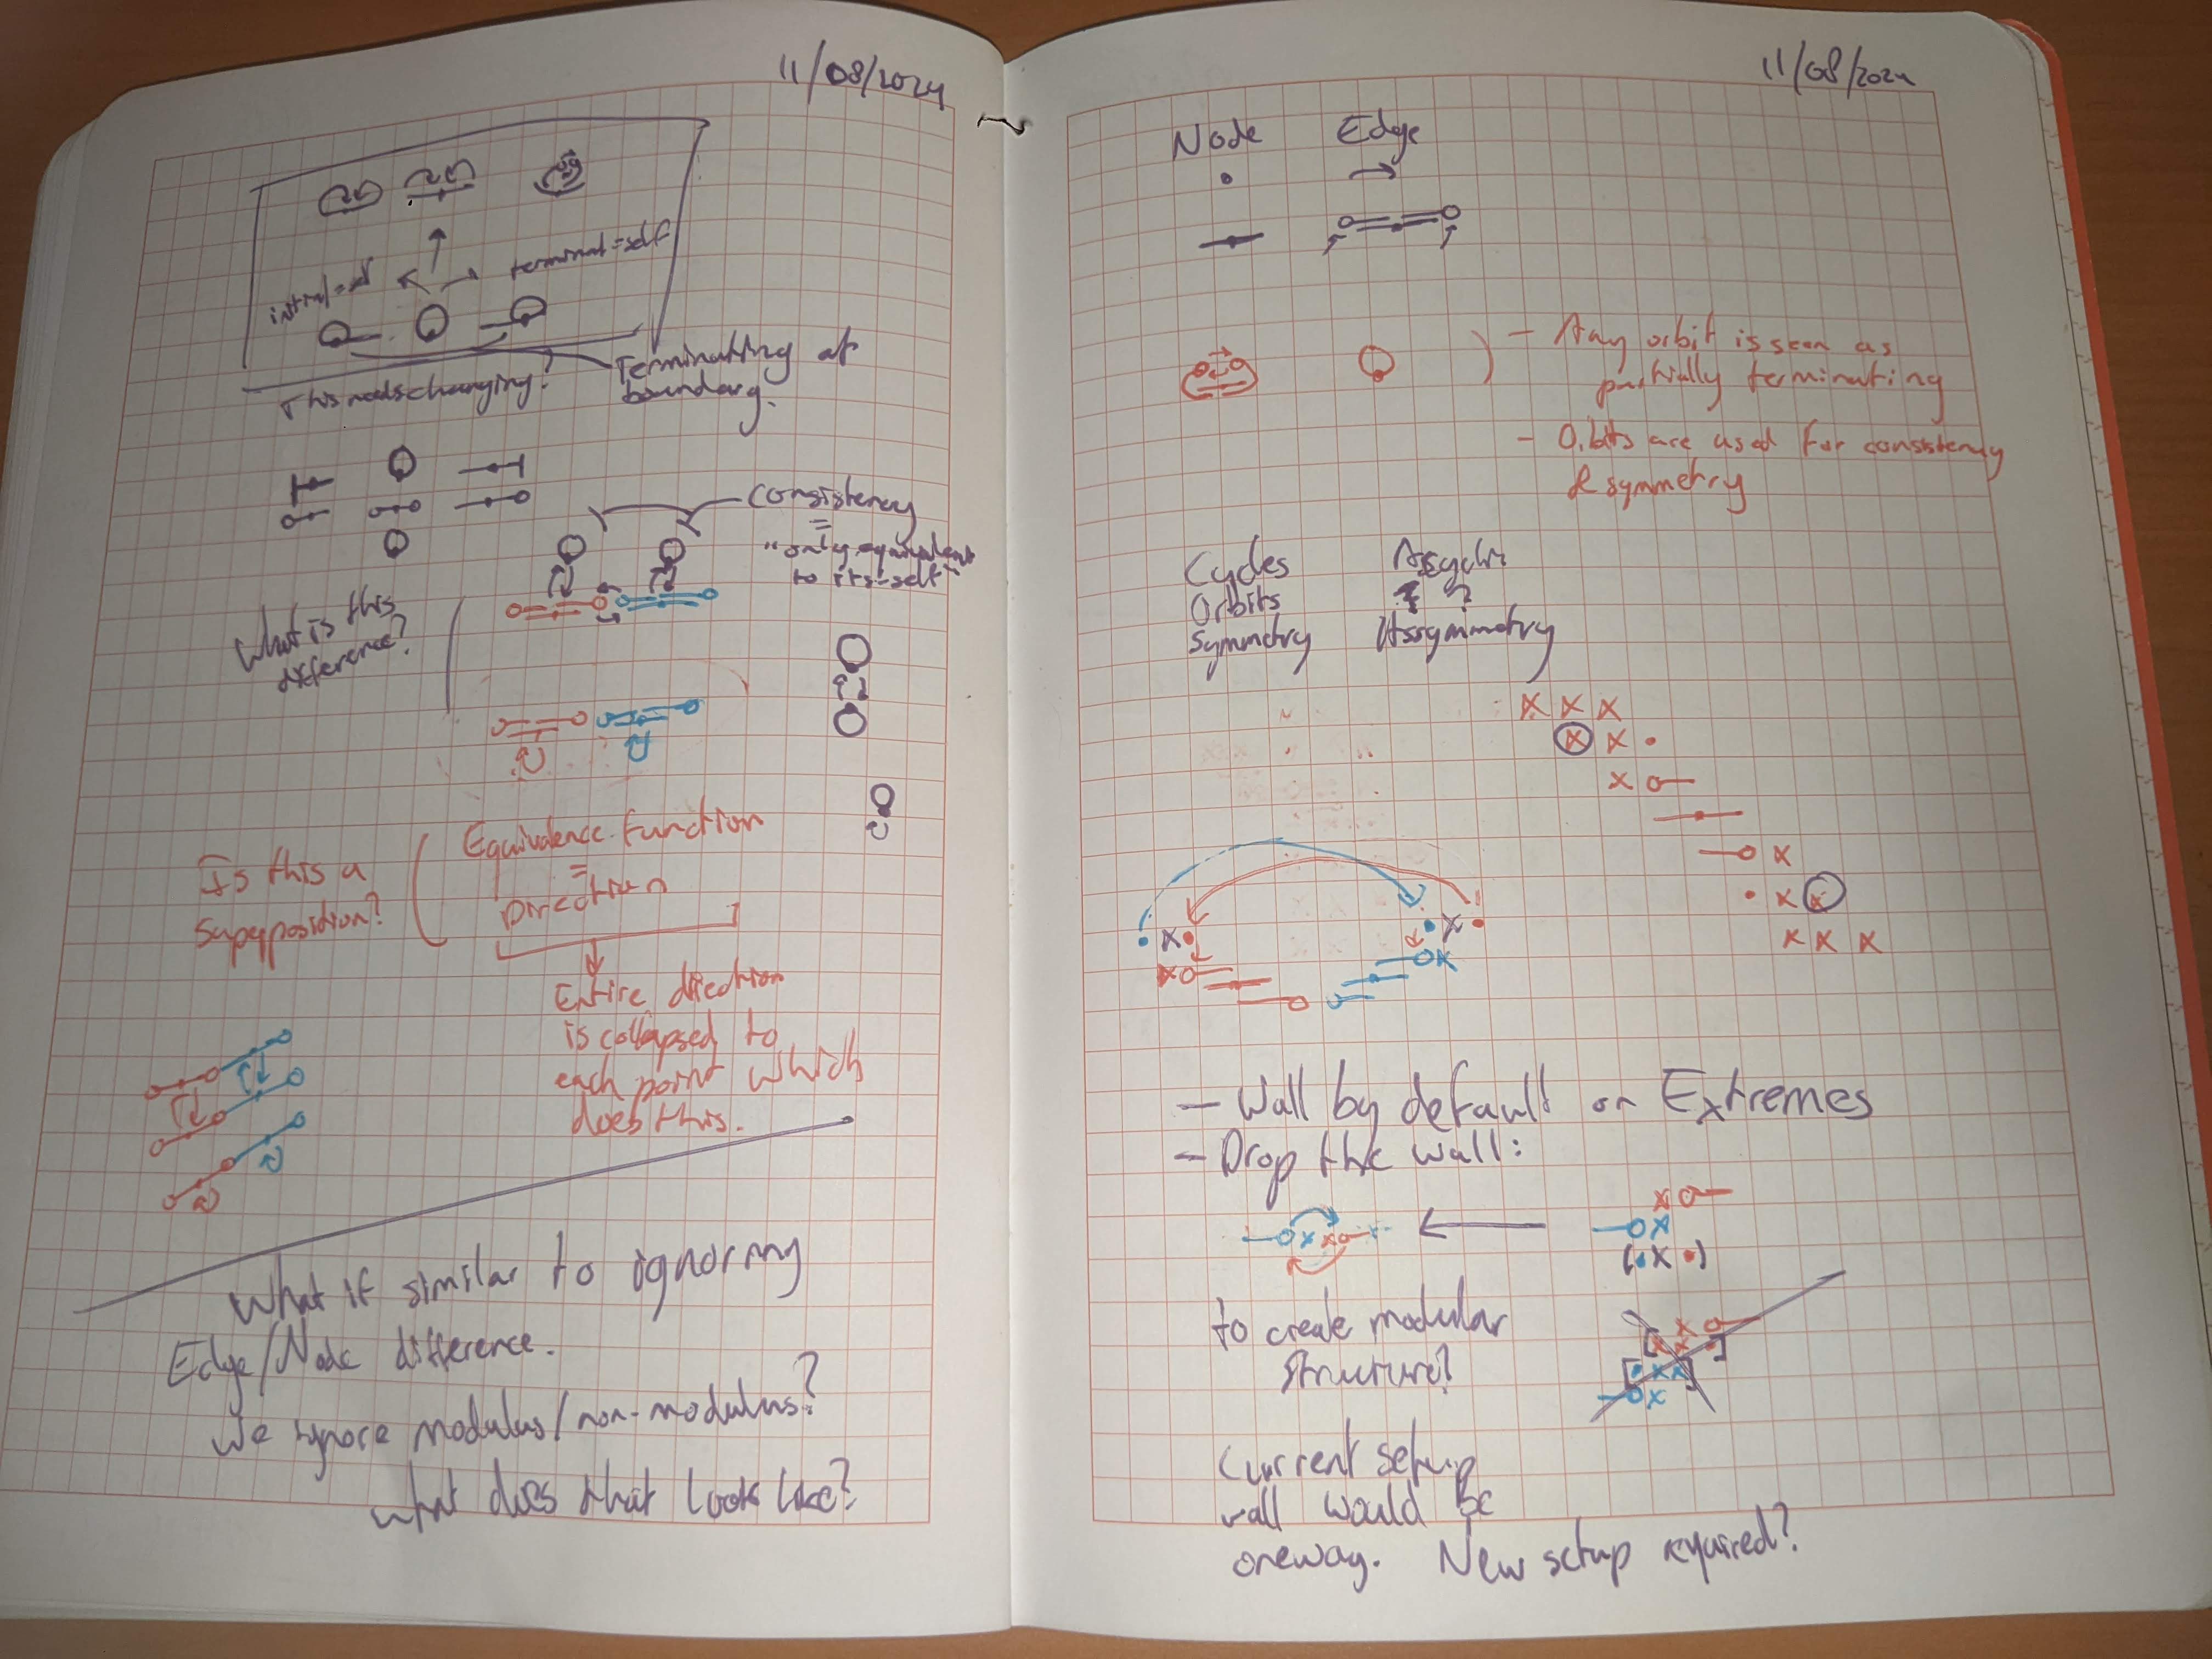 11/08/2024
initial=self
terminal=self
This needs changing?
Terminating at
boundary.
Consistency
=
"only equivalent
to its-self"
What is this
difference?
Is this a
Superposition?
Equivalence function
=
Direction
Entire direction
is collapsed to
each point which
does this.
What if similar to ignoring
Edge/Node difference.
We ignore modulus/non-modulus?
What does that look like?
11/08/2024
Node Edge
- Any orbit is seen as
partially terminating
- Orbits are used for consistency
& symmetry
Cycles
Orbits
Symmetry
?
Assymmetry
x x x
x x
x
x
x x
x x x
x
x
x
x
- Wall by default on Extremes
- Drop the wall:
x
x
(•x•)
x x
to create modular
structure?
Current setup
wall would be
oneway. New setup required?